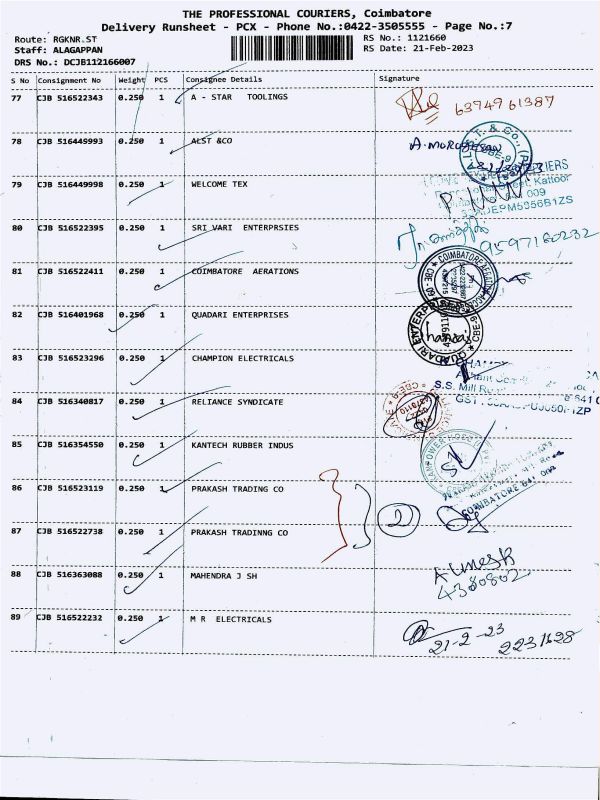 THE PROFESSIONAL COURIERS, Coimbatore
Delivery Runsheet - PCX - Phone No.:0422-3505555 - Page No.:7
Route: RGKNR.ST
RS No.: 1121660
Staff: ALAGAPPAN
RS Date: 21-Feb-2023
DRS No.: DCJB112166007
S No Consignment No Weight PCS Consignee Details Signature
77 CJB 516522343 0.250 1 A - STAR TOOLINGS 6374961387
78 CJB 516449993 0.250 ALST &CO
79 CJB 516449998 0.250 1 WELCOME TEX
80 CJB 516522395 0.250 1 SRI VARI ENTERPRSIES 9597160232
81 CJB 516522411 0.250 1 COIMBATORE AERATIONS
82 CJB 516401968 0.250 1 QUADARI ENTERPRISES
83 CJB 516523296 0.250 1 CHAMPION ELECTRICALS
S.S. Mill
84 CJB 516340817 0.250 1 RELIANCE SYNDICATE
85 CJB 516354550 0.250 1 KANTECH RUBBER INDUS
86 CJB 516523119 0.250 1 PRAKASH TRADING CO
2
COIMBATORE
87 CJB 516522738 0.250 1 PRAKASH TRADINNG CO
88 CJB 516363088 0.250 1 MAHENDRA J SH
4380802
89 CJB 516522232 0.250 1 M R ELECTRICALS
21-2-23 2231628